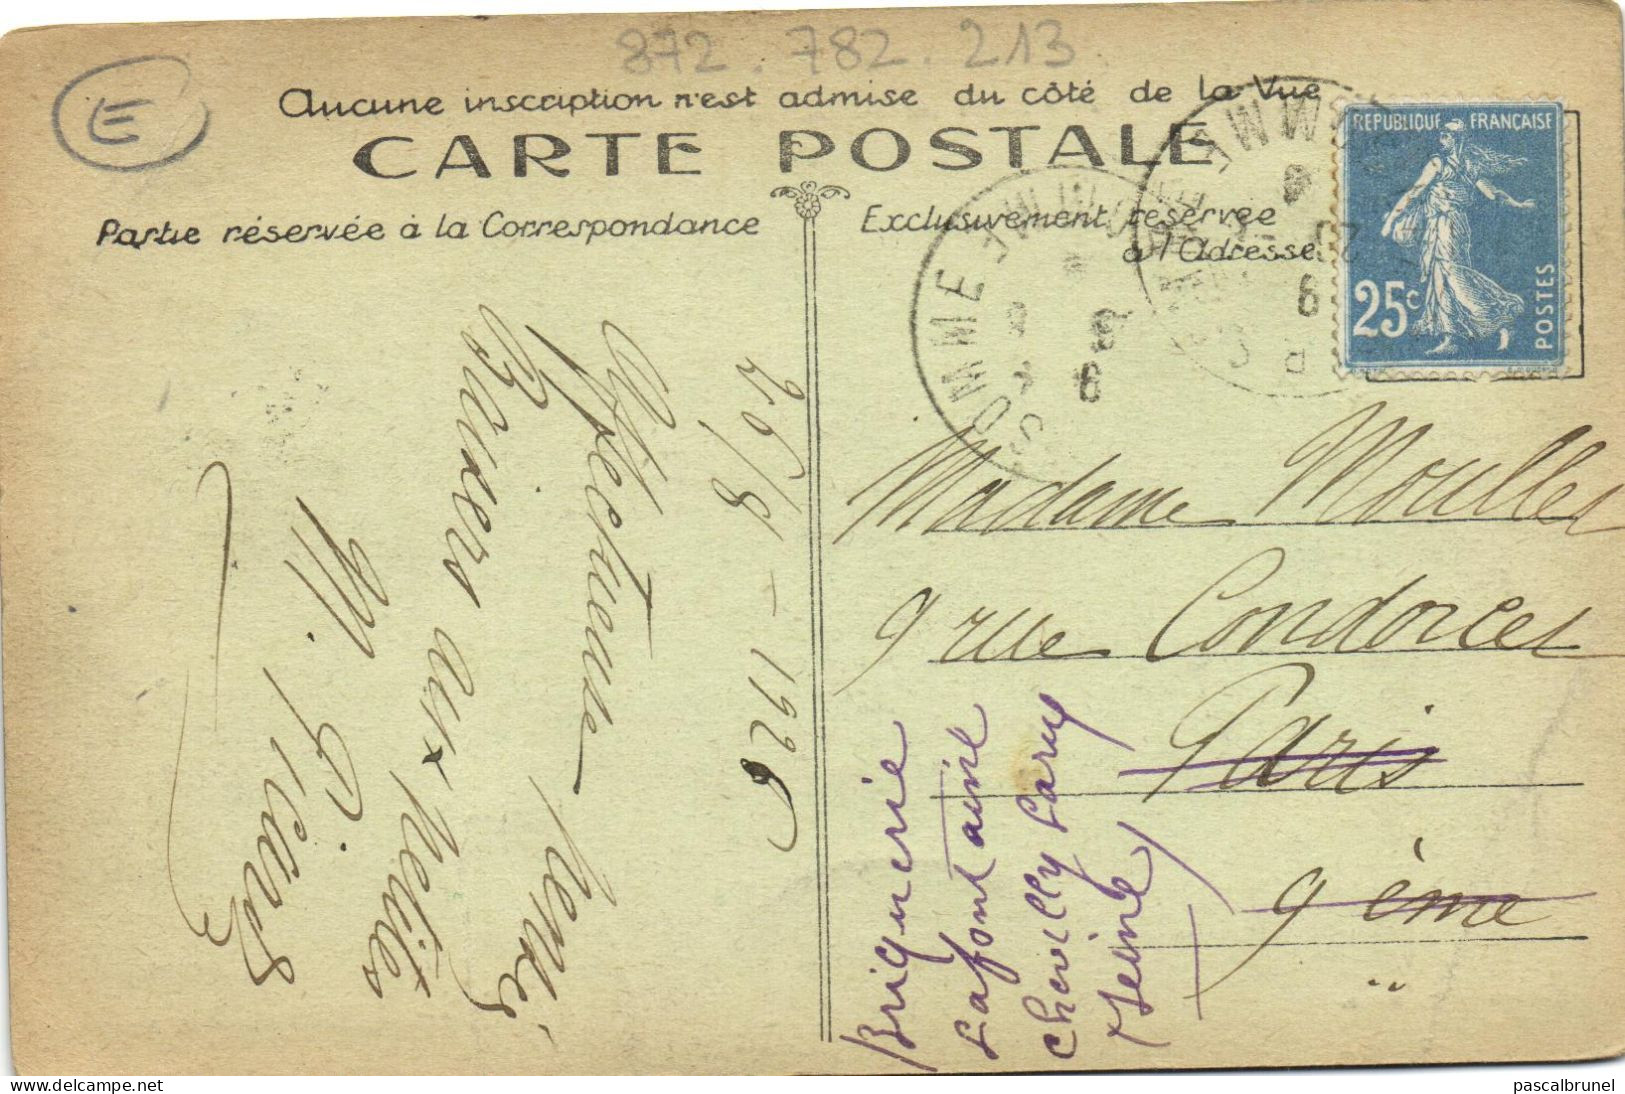 872.782.213
E
Aucune inscription n'est admise du côté de la Vue
CARTE POSTALE
Partie réservée à la Correspondance
Exclusivement réservée
à l'Adresse
REPUBLIQUE FRANÇAISE
25c
POSTES
SOMME
SOMME
26/8 - 1926
Affectueuse pensée
Baisers aux petites
M. Picard
Madame Moulles
9 rue Condorcet
Paris
9ème
Briqueterie
Lafontaine
Chevilly Larue
(Seine)
delcampe.net
pascalbrunel